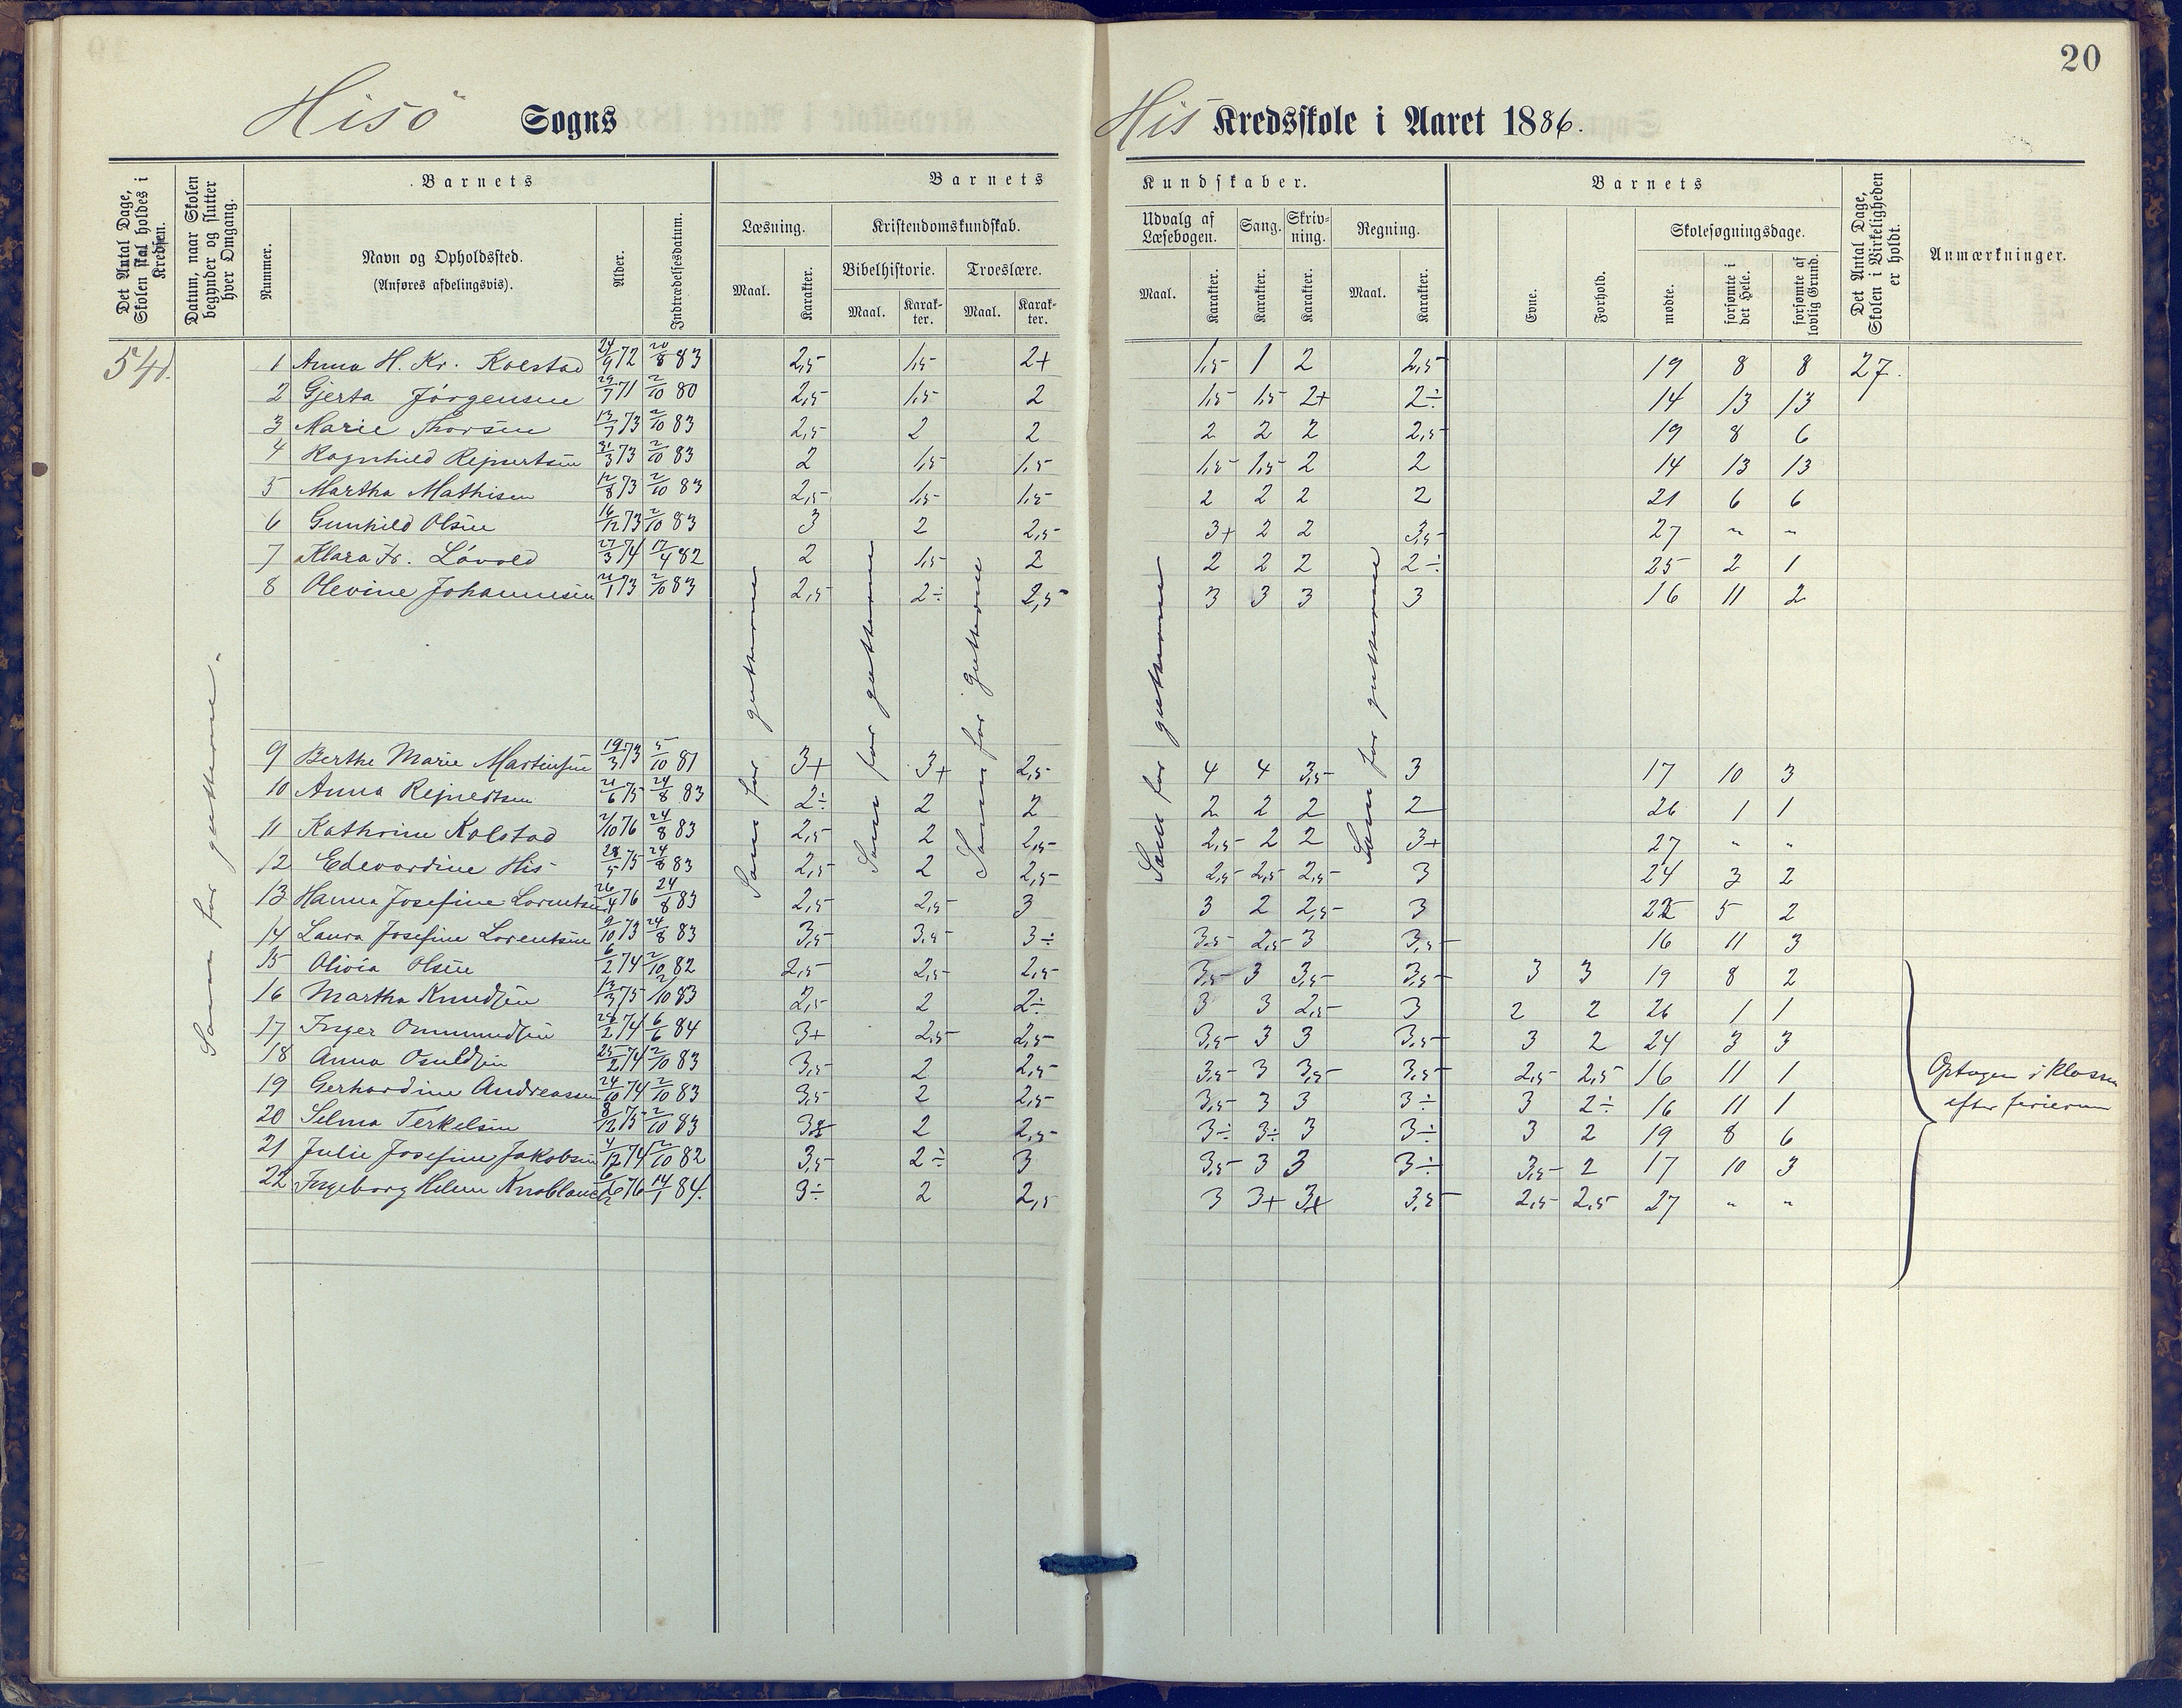 20
Hisö Sogns His Kredsskole i Aaret 1886.
Det Antal Dage, Skolen skal holdes i Kredsen.
Datum, naar Skolen begynder og slutter hver Omgang.
Barnets
Nummer.
Navn og Opholdssted. (Anføres afdelingsvis).
Alder.
Indtrædelsesdatum.
Barnets Kundskaber.
Læsning.
Maal.
Karakter.
Kristendomskundskab.
Bibelhistorie.
Maal.
Karak-ter.
Troeslære.
Maal.
Karak-ter.
Udvalg af Læsebogen.
Maal.
Karakter.
Sang.
Karakter.
Skriv-ning.
Karakter.
Regning.
Maal.
Karakter.
Barnets
Evne.
Forhold.
Skolesøgningsdage.
mødte.
forsømte i det Hele.
forsømte af lovlig Grund.
Det Antal Dage, Skolen i Virkeligheden er holdt.
Anmærkninger.
54d.
Som for gutterne.
Som for gutterne
Som for gutterne
Som for gutterne
Som for gutterne
Som for gutterne
1 Anna H. Kr. Kolstad 24/9 72 20/8 83 2,5 1,5 2+ 1,5 1 2 2,5 19 8 8 27.
2 Gjerta Jörgensen 29/7 71 2/10 80 2,5 1,5 2 1,5 1,5 2+ 2÷ 14 13 13
3 Marie Thorsen 13/7 73 2/10 83 2,5 2 2 2 2 2 2,5 19 8 6
4 Ragnhild Rejnertsen 31/3 73 2/10 83 2 1,5 1,5 1,5 1,5 2 2 14 13 13
5 Martha Mathisen 12/8 73 2/10 83 2,5 1,5 1,5 2 2 2 2 21 6 6
6 Gunhild Olsen 16/12 73 2/10 83 3 2 2,5 3+ 2 2 3,5 27 " "
7 Klara Fr. Lövold 27/3 74 17/4 82 2 1,5 2 2 2 2 2÷ 25 2 1
8 Olevine Johannesen 21/1 73 2/10 83 2,5 2÷ 2,5 3 3 3 3 16 11 2
9 Berthe Marie Martinsen 19/3 73 5/10 81 3+ 3+ 2,5 4 4 3,5 3 17 10 3
10 Anna Rejnertsen 21/6 75 24/8 83 2÷ 2 2 2 2 2 2 26 1 1
11 Kathrine Kolstad 2/10 76 24/8 83 2,5 2 2,5 2,5 2 2 3+ 27 " "
12 Edevardine His 28/5 75 24/8 83 2,5 2 2,5 2,5 2,5 2,5 3 24 3 2
13 Hanna Josefine Lorentsen 26/4 76 24/8 83 2,5 2,5 3 3 2 2,5 3 22 5 2
14 Laura Josefine Lorentsen 9/10 73 24/8 83 3,5 3,5 3÷ 3,5 2,5 3 3,5 16 11 3
15 Olivia Olsen 6/2 74 2/10 82 2,5 2,5 2,5 3,5 3 3,5 3,5 3 3 19 8 2
16 Martha Knudsen 13/3 75 2/10 83 2,5 2 2÷ 3 3 2,5 3 2 2 26 1 1
17 Inger Ommundsen 28/2 74 6/6 84 3+ 2,5 2,5 3,5 3 3 3,5 3 2 24 3 3
18 Anna Osuldsen 25/2 74 2/10 83 3,5 2 2,5 3,5 3 3,5 3,5 2,5 2,5 16 11 1
19 Gerhardine Andreassen 24/10 74 2/10 83 3,5 2 2,5 3,5 3 3 3÷ 3 2÷ 16 11 1
20 Selma Terkelsen 8/12 75 2/10 83 2 2,5 3÷ 3÷ 3 3÷ 3 2 19 8 6
21 Julie Josefine Jakobsen 4/12 74 2/10 82 3,5 2÷ 3 3,5 3 3 3÷ 3,5 2 17 10 3
22 Ingeborg Helene Knoblauch 76 14/1 84. 3÷ 2 2,5 3 3+ 3+ 3,5 2,5 2,5 27 " "
Optagen i Klassen
efter ferierne